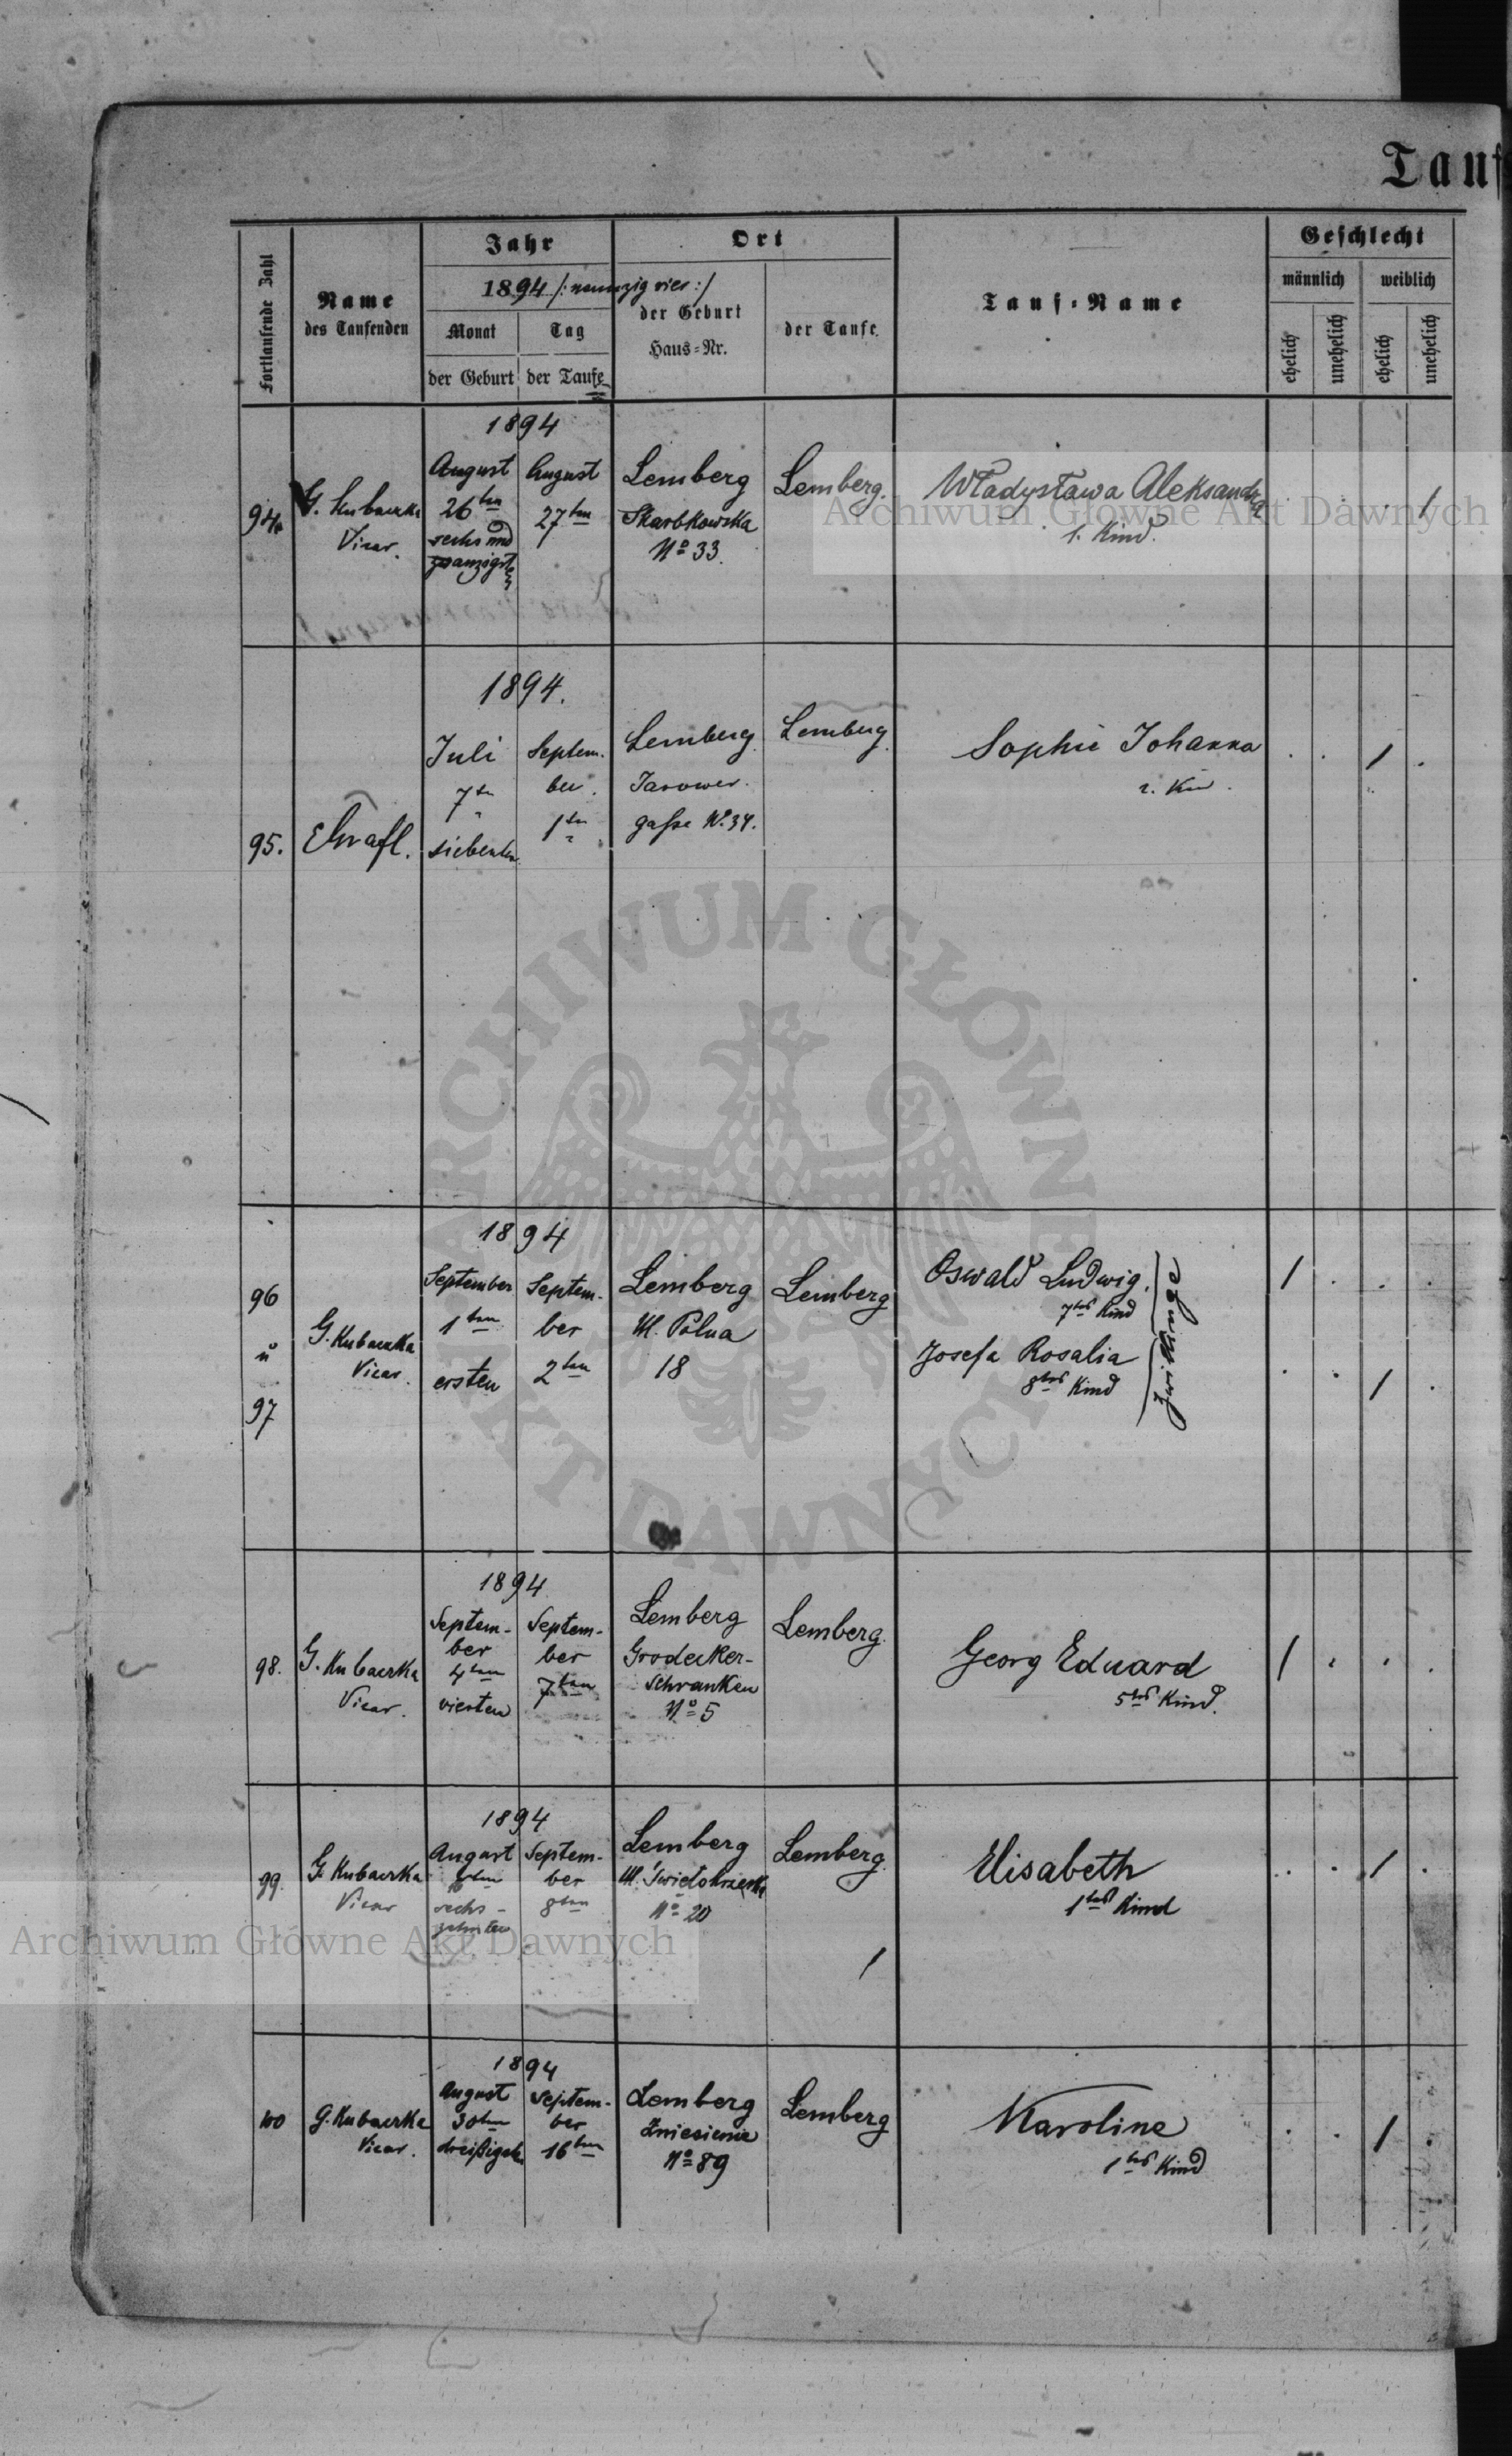 Tauf
Fortlaufende Zahl
Name
des Taufenden
Jahr
1894 /: neunzig vier :/
Monat
Tag
der Geburt
der Taufe
Ort
der Geburt
Haus-Nr.
der Taufe
Tauf-Name
Geschlecht
männlich
weiblich
ehelich
unehelich
ehelich
unehelich
94.
G. Kubaczka
Vicar.
1894
August
26ten
sechs und
zwanzigsten
August
27ten
Lemberg
Skarbkowska
No 33.
Lemberg.
Władysława Aleksandra
1. Kind.
/
95.
1894.
Juli
7ten
siebenten
Septem.
ber.
1ten
Lemberg
Janower.
gasse No. 34.
Lemberg
Sophie Johanna
/
96
u
97
G. Kubaczka
Vicar.
1894
September
1ten
ersten
Septem-
ber
2ten
Lemberg
Ul. Polna
18
Lemberg
Oswald Ludwig.
7tes Kind
Josefa Rosalia
8tes Kind
Zwillinge
/
/
98.
G. Kubaczka
Vicar.
1894
Septem-
ber
4ten
vierten
Septem-
ber
7ten
Lemberg
Grodecker-
Schranken
No 5
Lemberg.
Georg Eduard
5tes Kind.
/
99.
G. Kubaczka
Vicar
1894
August
sechs-
zehnten
Septem-
ber
8ten
Lemberg
Ul. Świętokrzyska
No 20
Lemberg.
Elisabeth
1tes Kind
/
100
G. Kubaczka
Vicar.
1894
August
30ten
dreißigsten
Septem-
ber
16ten
Lemberg
Zniesienie
No 89
Lemberg
Karoline
1tes Kind
/
Archiwum Główne Akt Dawnych
ARCHIWUM GŁÓWNE AKT DAWNYCH
Archiwum Główne Akt Dawnych